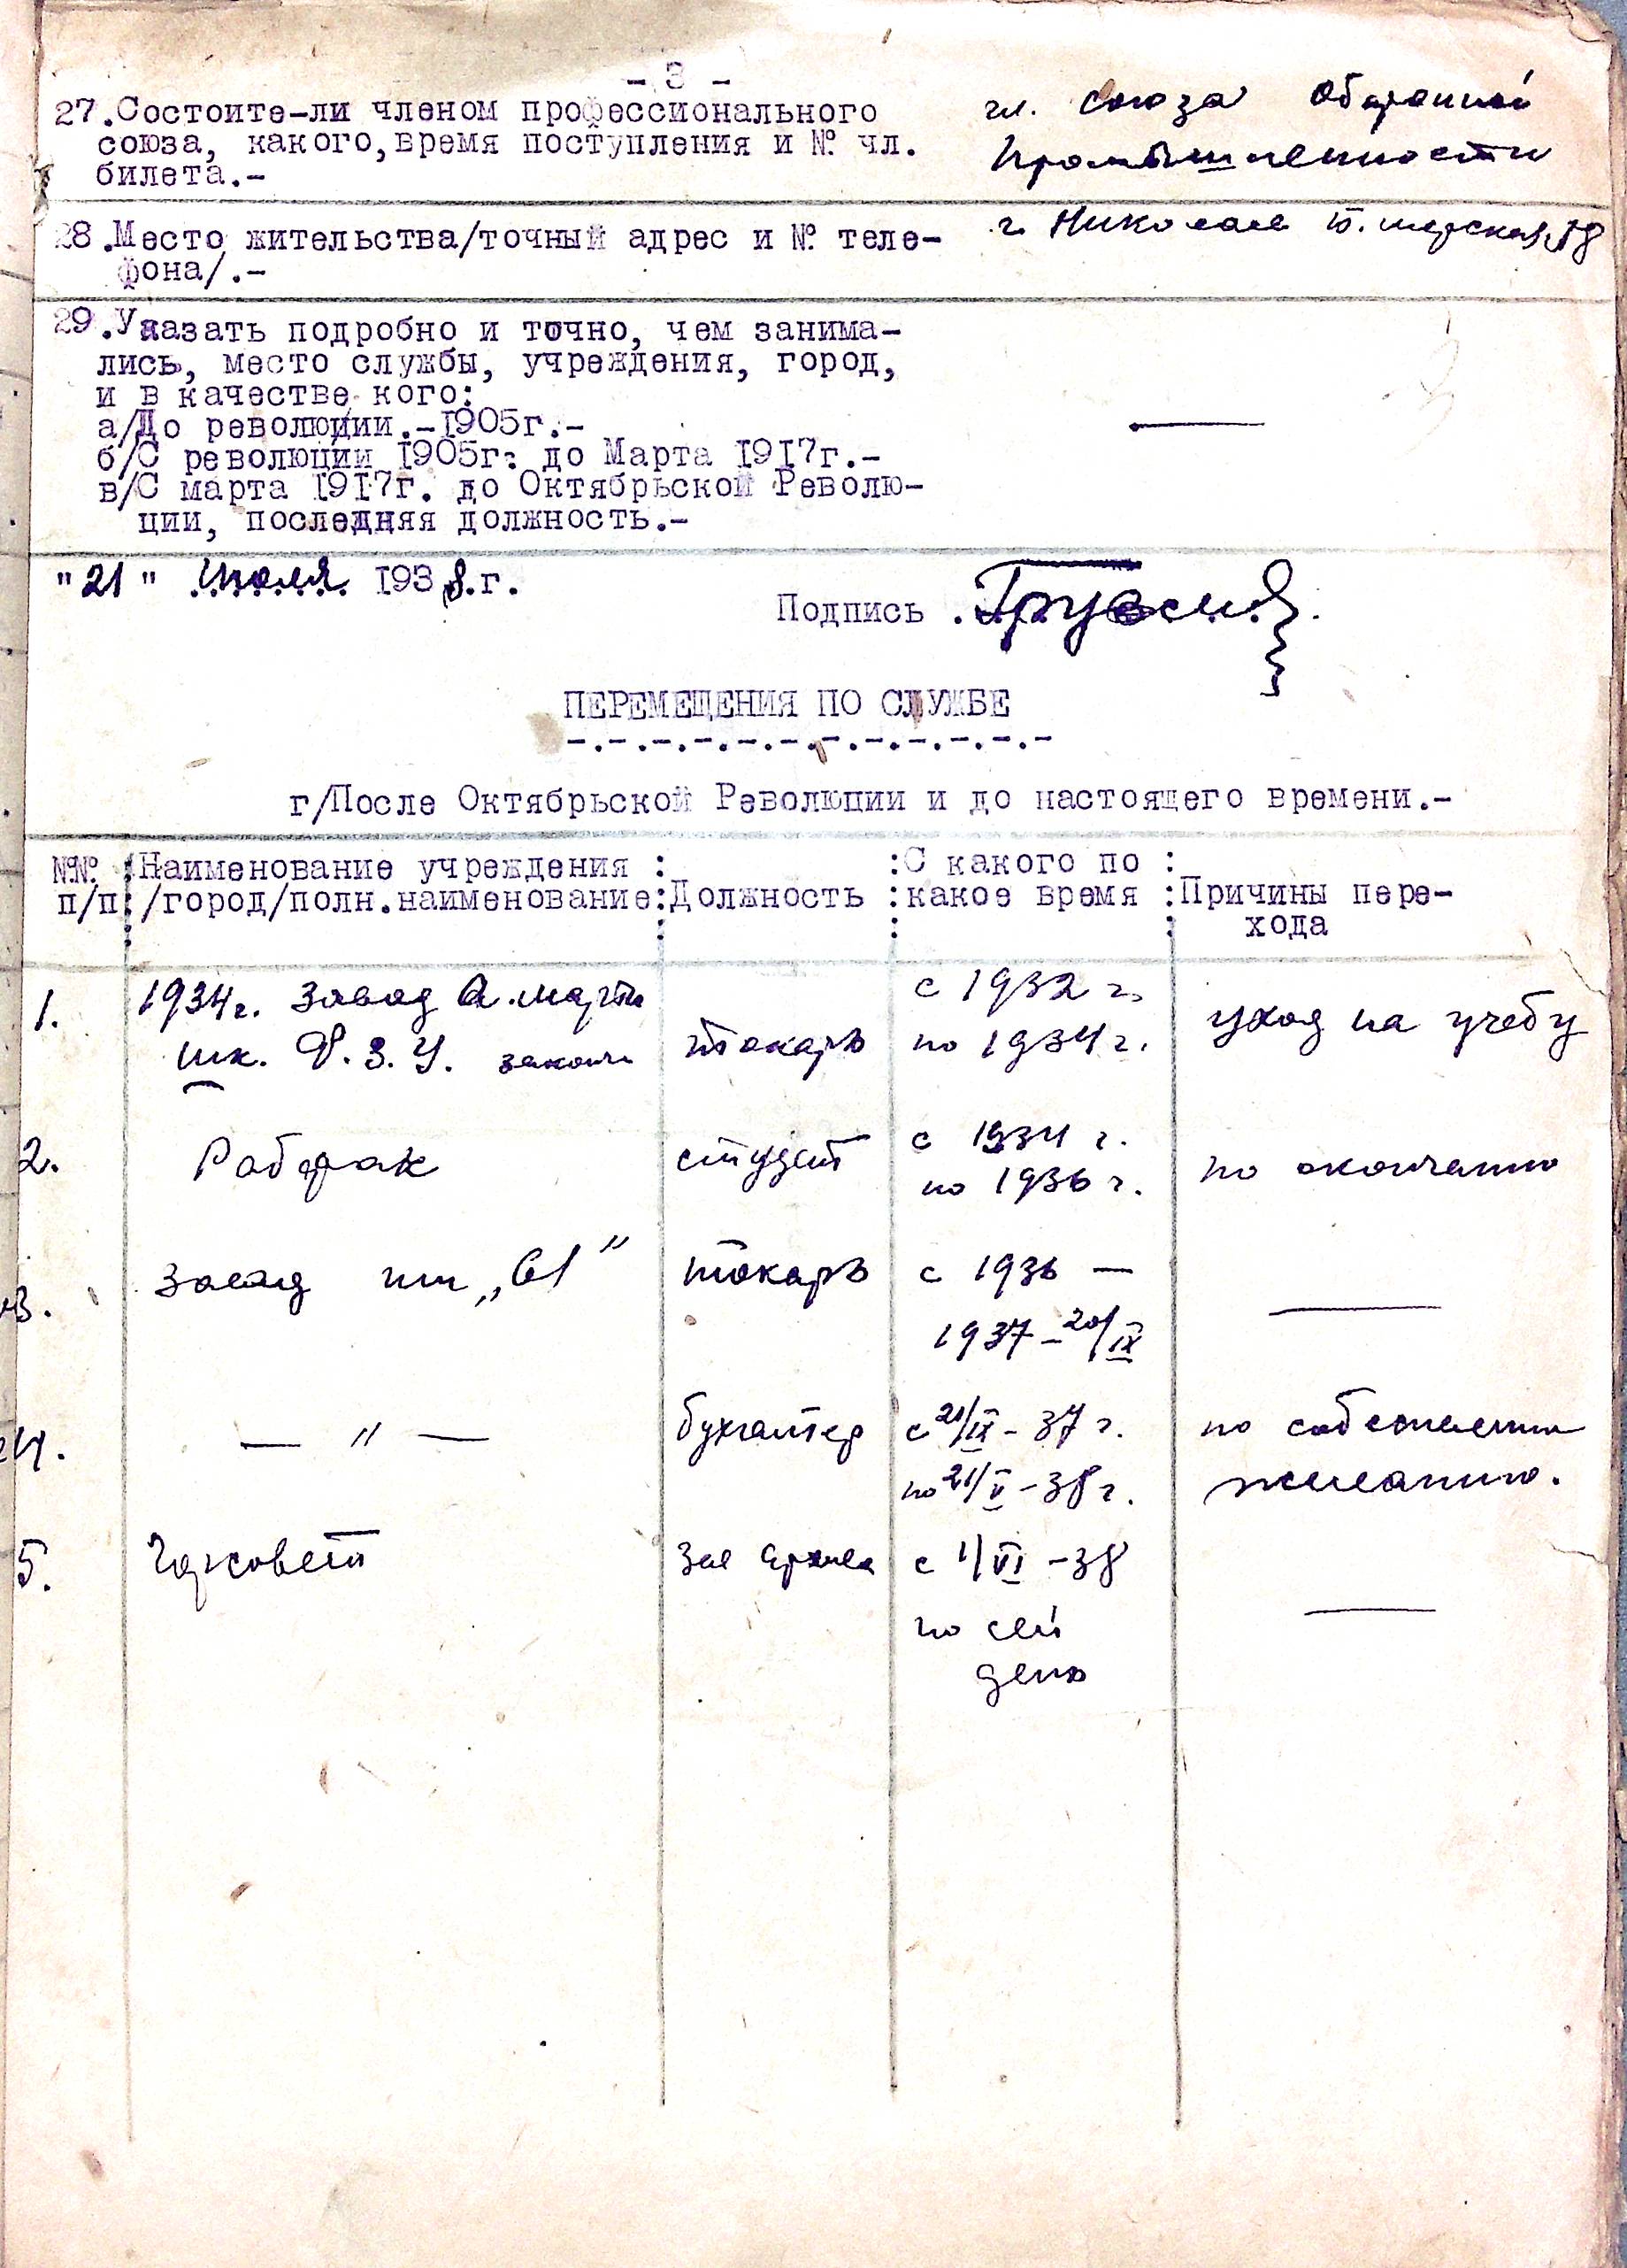 - 3 -
27.Состоите-ли членом профессионального
союза, какого,время поступления и № чл.
билета.-
чл. союза Оборонной
Промышленности
28.Место жительства/точный адрес и № теле-
фона/.-
г. Николаев Б. морская 18
29.Указать подробно и точно, чем занима-
лись, место службы, учреждения, город,
и в качестве кого:
а/До революции.-1905г.-
б/С революции 1905г. до Марта 1917г.-
в/С марта 1917г. до Октябрьской Револю-
ции, последняя должность.-
"21" Июля 1938.г.
Подпись
ПЕРЕМЕЩЕНИЯ ПО СЛУЖБЕ
г/После Октябрьской Революции и до настоящего времени.-
№№ п/п
Наименование учреждения /город/полн.наименование
Должность
С какого по какое время
Причины пере-
хода
1. 1934г. завод А. Марти токарь с 1932 г. уход на учебу
шк. Ф.З.У. по 1934 г.
2. Рабфак студент с 1934 г. по окончанию
по 1936 г.
3. завод им „61" токарь с 1936 —
1937 – 20/IX
4. — " — бухгалтер с 21/IX - 37 г. по собственном
по 21/V - 38 г. желанию.
5. Горсовет Зав Архива с 1/VI - 38
по сей
день